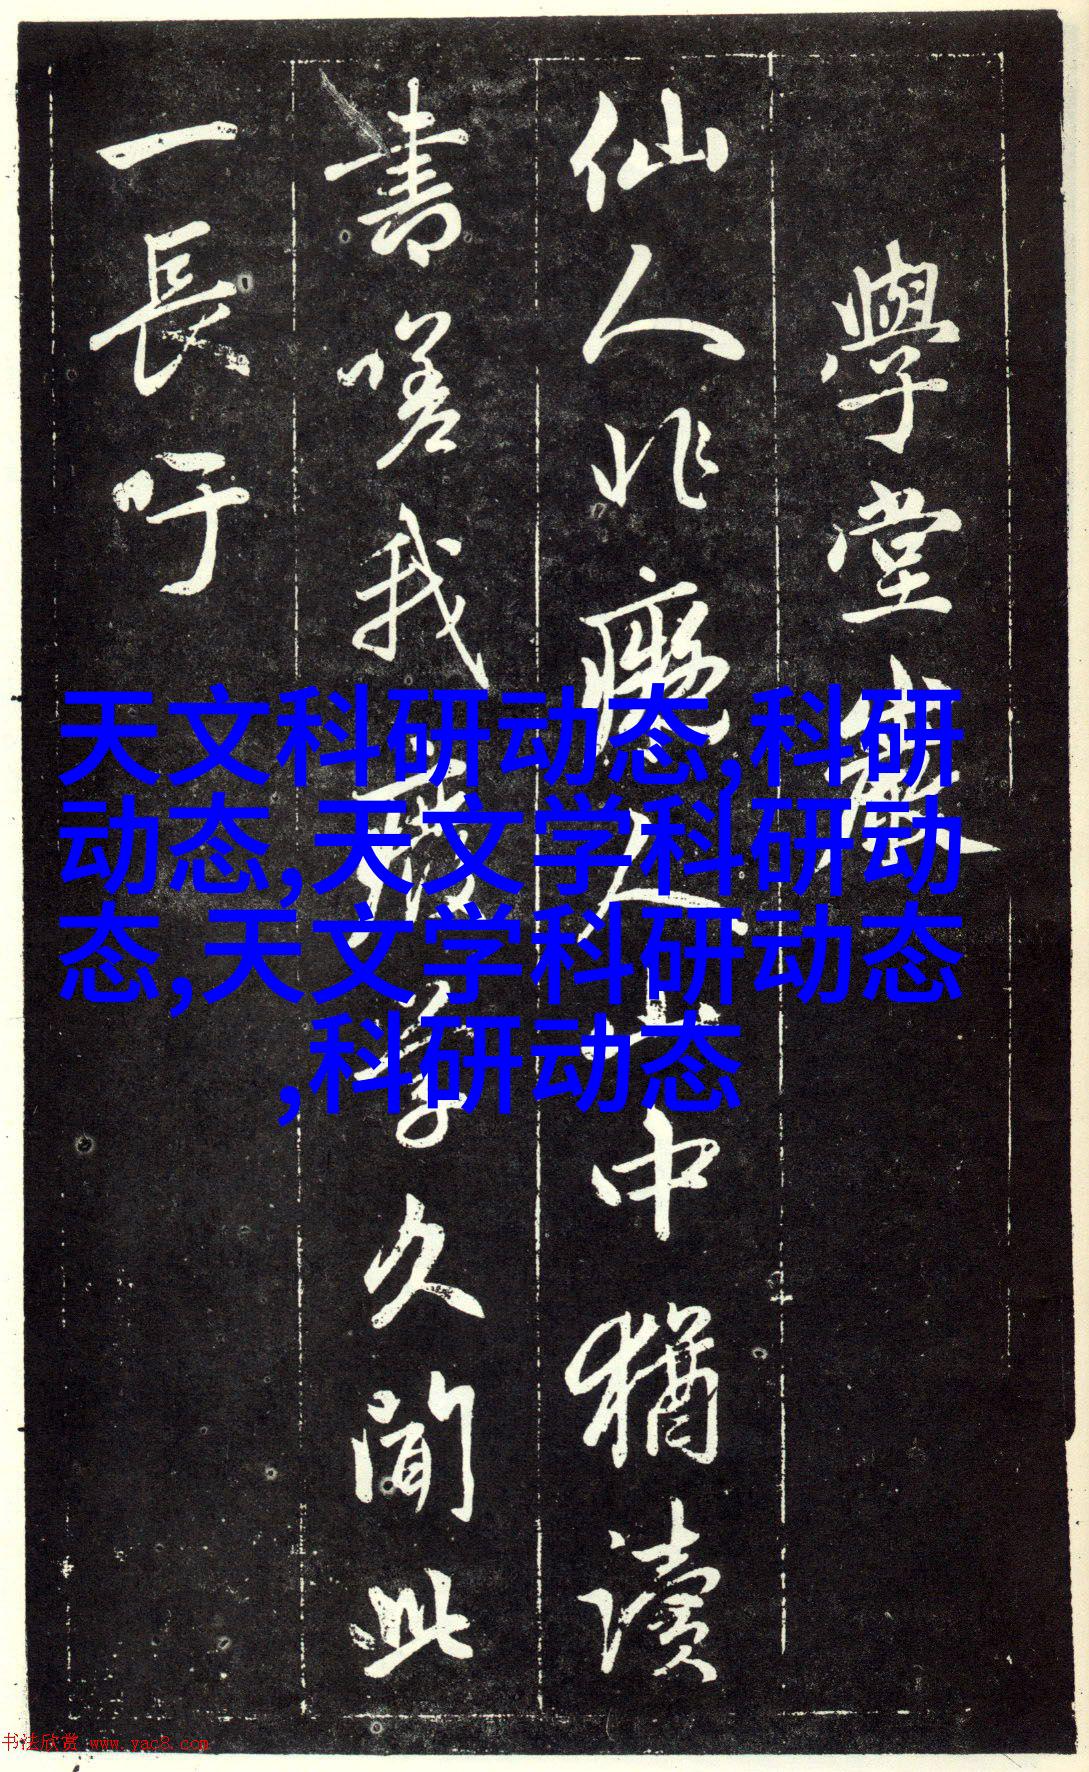 學堂巖
仙人非癡人山中猶讀
書嗟我廢學久聞此
一長吁
天文科研动态,科研
动态,天文学科研动
态,天文学科研动态
,科研动态
书法欣赏 www.yac8.com